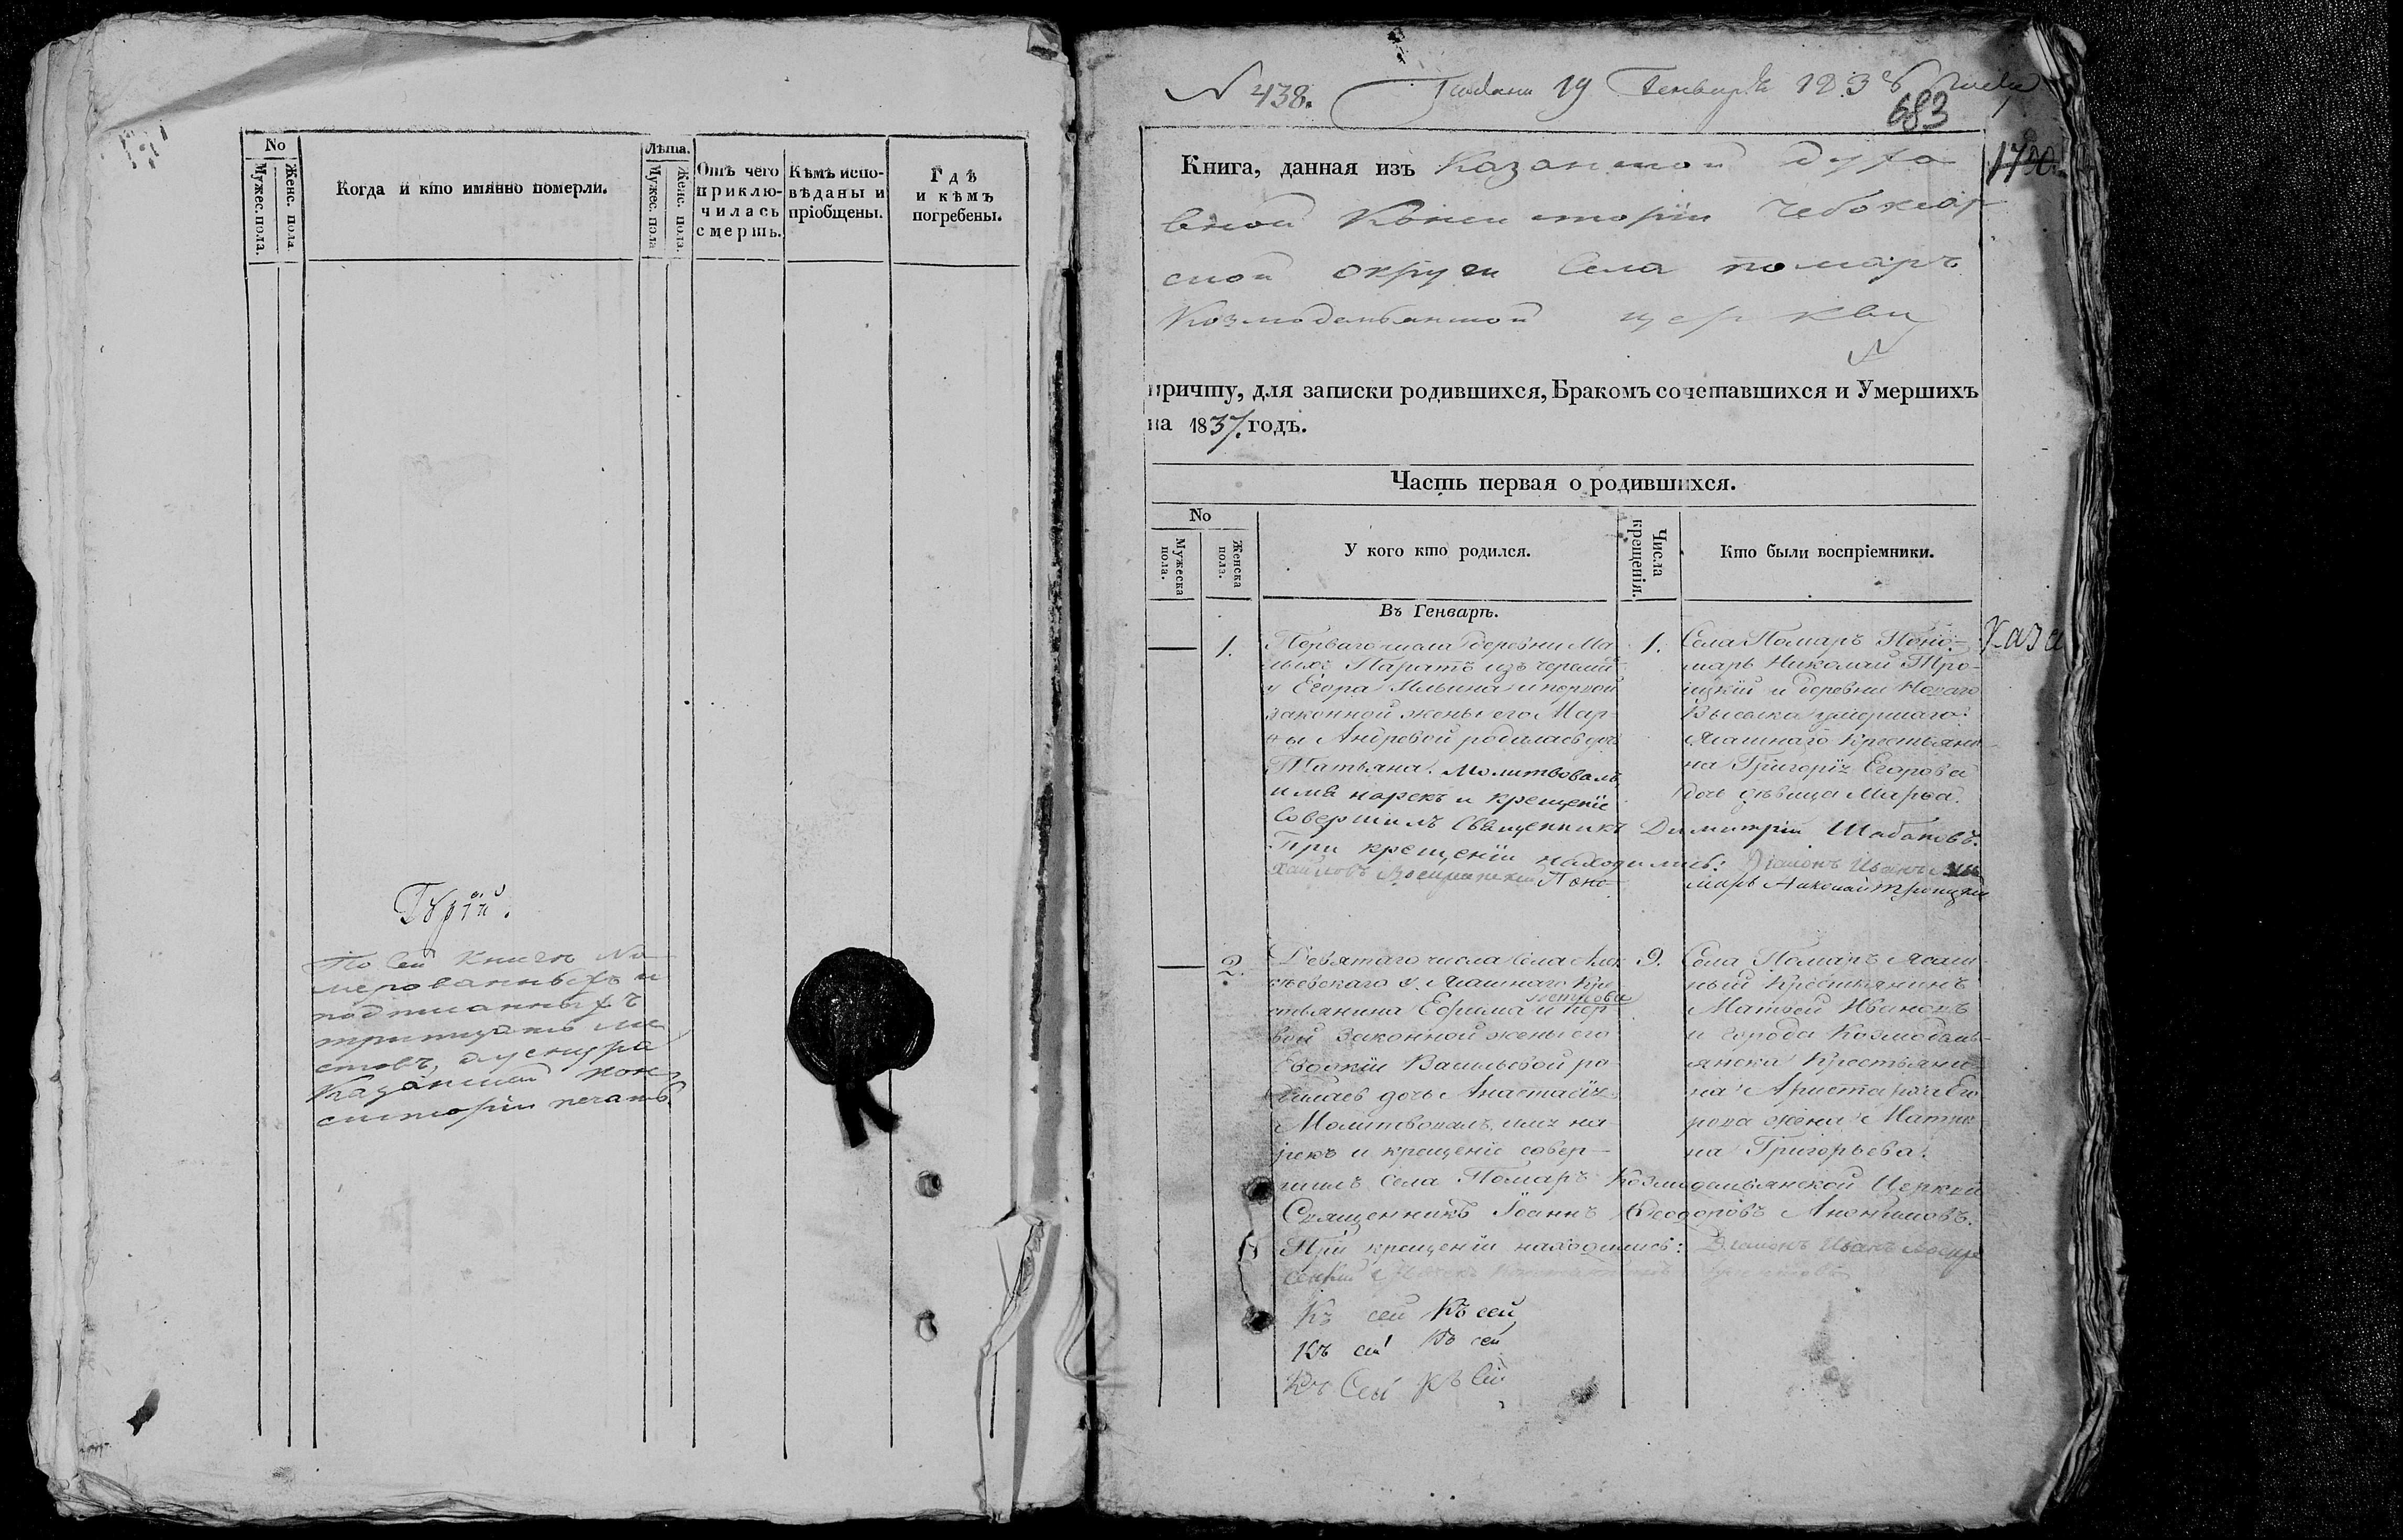 No
Мужес. пола.
Женс. пола.
Когда и кто имянно померли.
Лѣта.
Мужес. пола
Женс. пола.
Отъ чего приклю-
чилась
смерть.
Кѣмъ испо-
вѣданы и
пріобщены.
Гдѣ
и кѣмъ
погребены.
Гурій.
По сей книгѣ но
мерованныхъ и
подписанныхъ
тритцать ли
стовъ, у снура
Казанской кон
систоріи печать.
N 438. 19 Генваря 1838 года
683
Книга, данная изъ Казанской духо
вной Консисторіи Чебоксар
ской округи Села помаръ
Козмодемьянской церкви
причту, для записки родившихся, Бракомъ сочетавшихся и Умершихъ
на 1837. годъ.
Часть первая о родившихся.
No
Мужеска пола.
Женска пола.
У кого кто родился.
Числа крещенія.
Кто были воспріемники.
Въ Генварѣ.
1.
Перваго числа деревни Ма
лыхъ Паратъ изъ черемисъ
у Егора Ильина и первой
законной жены его Мар-
ѳы Андревой родилась дочь
Татьяна. Молитвовалъ,
имя нарекъ и крещеніе
Совершилъ Священникъ Димитрій Шабановъ.
При крещеніи находились: Діаконъ Иванъ Ми
хайловъ Воскресенскій Поно- марь Николай Троицкій
1.
Села Помаръ Поно-
марь Николай Тро-
ицкій и деревни Новаго
Выселка умершаго
Ясашнаго крестьяни
на Григорія Егорова
дочь дѣвица Марѳа.
Каза
2.
Девятаго числа Села
у Ясашнаго кре
стьянина Ефима Петрова и пер-
вой законной жены его
Евдокіи Васильевой ро
дилась дочь Анастасія
Молитвовалъ, имя на
рекъ и крещеніе совер-
шилъ Села Помаръ Козмодемьянской Церкви
Священникъ Іоаннъ Ѳеодоровъ Анонимовъ.
При крещеніи находились: Діаконъ Иванъ Воскре
сенскій
9.
Села Помаръ Ясаш
ный Крестьянинъ
Матвей Ивановъ
и города Козмодемь-
янска Крестьяни-
на Аристарха Его
рова жена Матре
на Григорьева.
Къ сей Къ сей
Къ сей Къ сей
Къ Сей Къ Сей